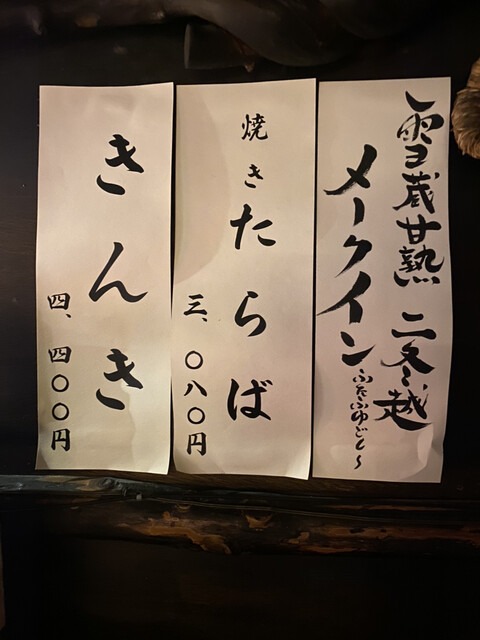 雪蔵甘熟 二冬越
メークイン
ふたふゆごし〜
焼きたらば
三、〇八〇円
きんき
四、四〇〇円